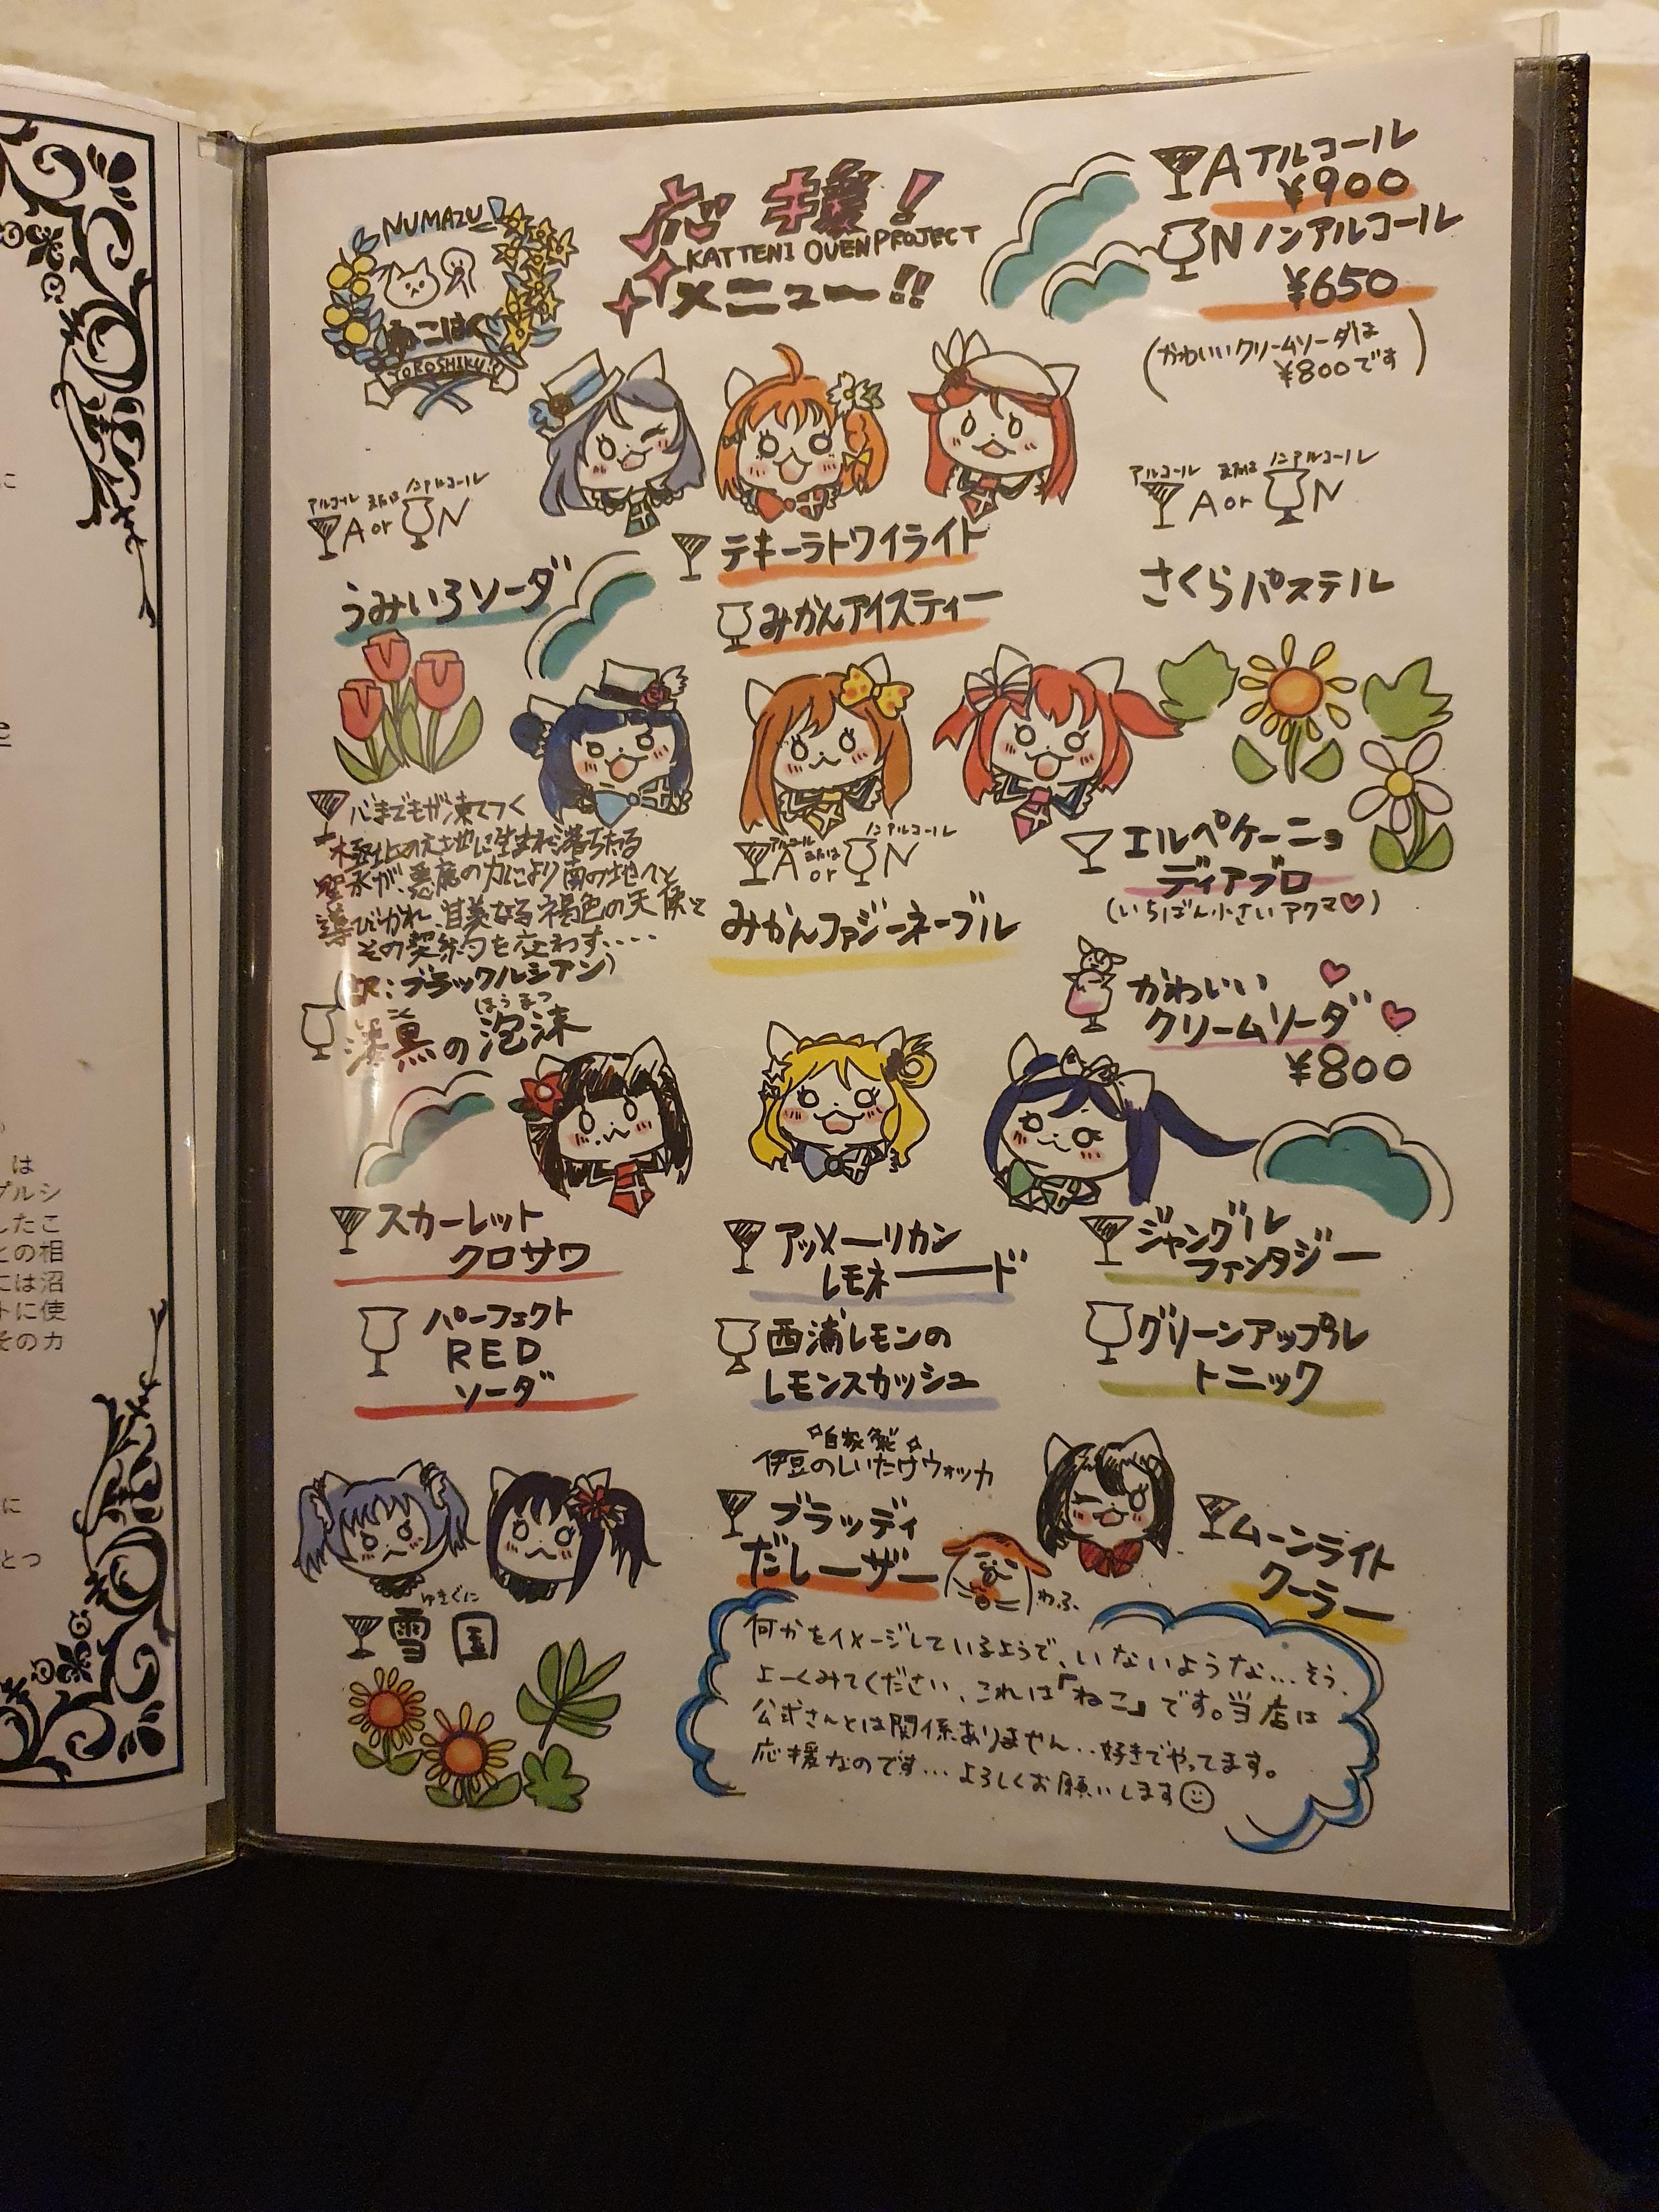 NUMAZU
ねこはく
YOROSHIKU!!
応援!
KATTENI OUEN PROJECT
メニュー!!
A アルコール
¥900
N ノンアルコール
¥650
(かわいいクリームソーダは
¥800です)
アルコール または ノンアルコール
A or N
うみいろソーダ
テキーラトワイライト
みかんアイスティー
アルコール または ノンアルコール
A or N
さくらパステル
心までもが凍てつく
極北の大地に生まれ落ちたる
聖水が、悪魔の力により南の地へと
導びかれ、甘美なる褐色の天使と
その契約を交わす....
(訳:ブラックルシアン)
こく ほうまつ
漆黒の泡沫
アルコール または ノンアルコール
A or N
みかんファジーネーブル
エルペケーニョ
ディアブロ
(いちばん小さいアクマ♡)
かわいい
クリームソーダ
¥800
スカーレット
クロサワ
パーフェクト
RED
ソーダ
アッメーリカン
レモネード
西浦レモンの
レモンスカッシュ
ジャングル
ファンタジー
グリーンアップル
トニック
ゆきぐに
雪国
自家製
伊豆のしいたけウォッカ
ブラッディ
だしーザー
わふ
ムーンライト
クーラー
何かをイメージしているようで、いないような...そう、
よーくみてください、これは「ねこ」です。当店は
公式さんとは関係ありません...好きでやってます。
応援なのです...よろしくお願いします
に
は
プルシ
したこ
との相
には沼
トに使
そのカ
に
とつ